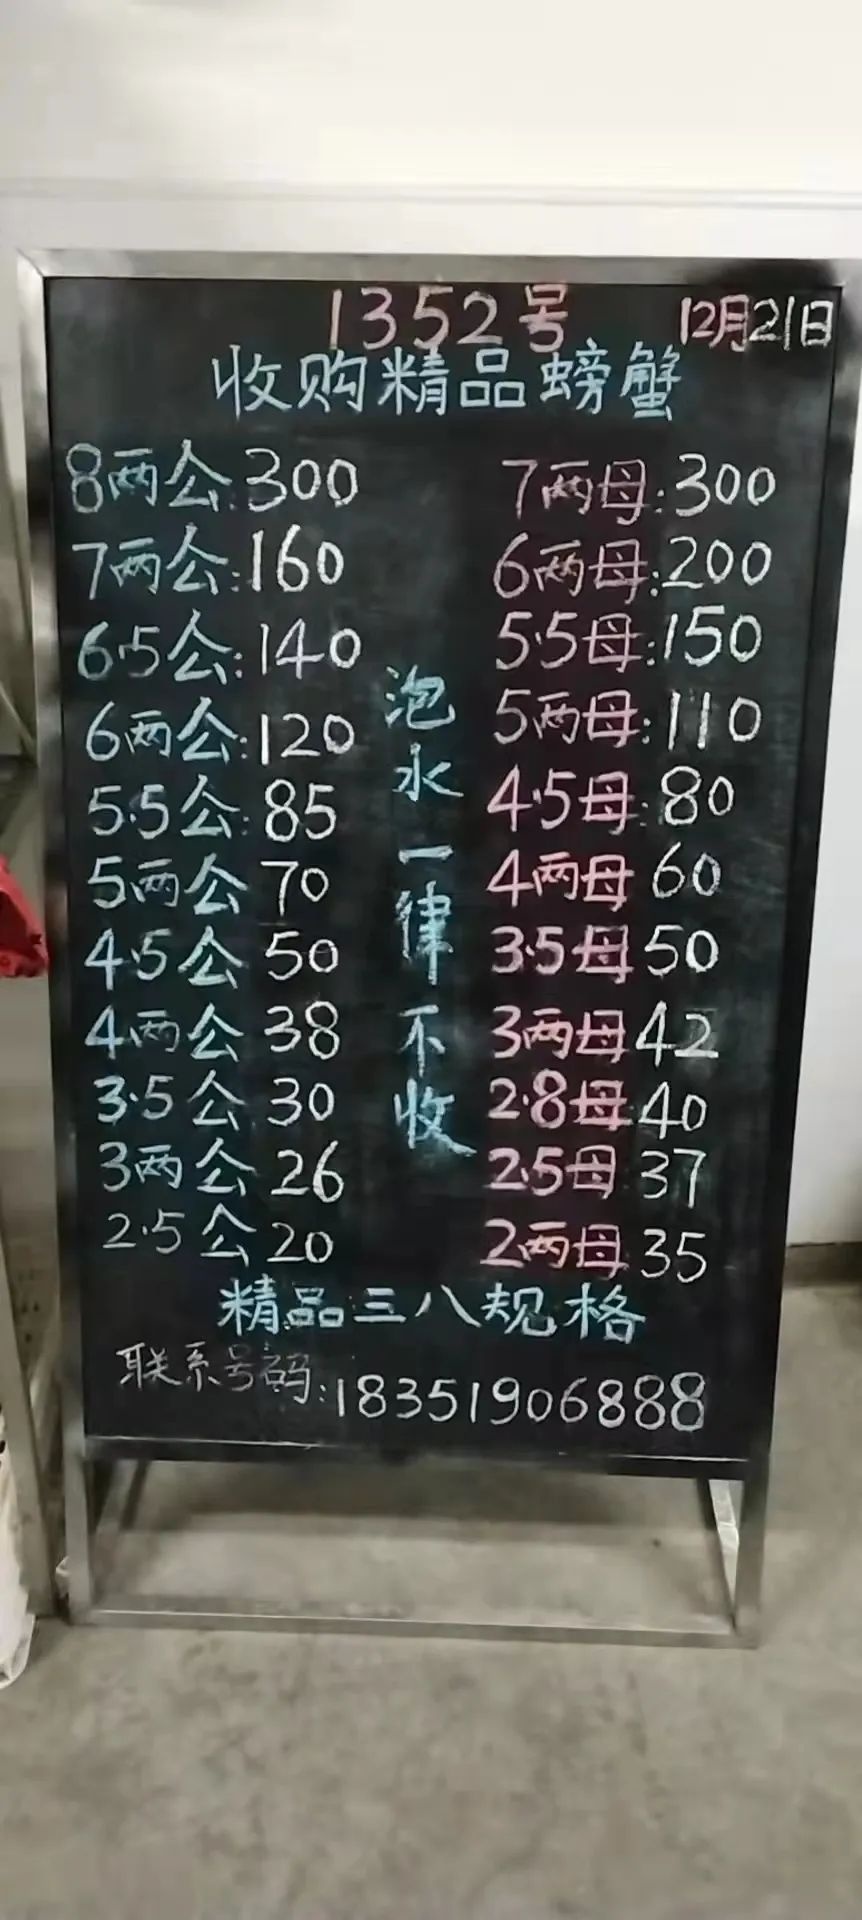 1352号 12月21日
收购精品螃蟹
8两公:300
7两公:160
6.5公:140
6两公:120
5.5公:85
5两公 70
4.5公 50
4两公 38
3.5公 30
3两公 26
2.5公 20
泡水一律不收
7两母:300
6两母:200
5.5母:150
5两母:110
4.5母:80
4两母 60
3.5母 50
3两母 42
2.8母 40
2.5母 37
2两母 35
精品三八规格
联系号码:18351906888